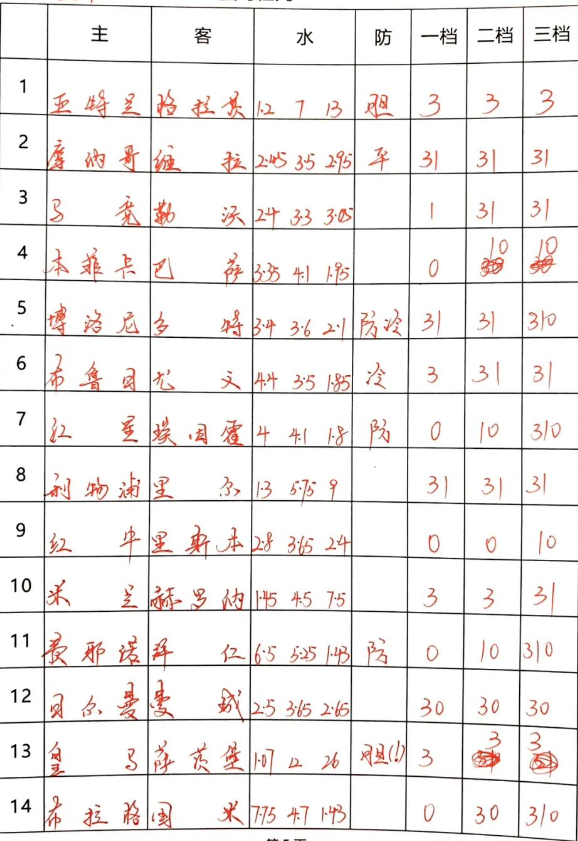 主 客 水 防 一档 二档 三档
1 亚特兰 格拉茨 1.2 7 13 胆 3 3 3
2 摩纳哥 维拉 2.45 3.5 2.95 平 31 31 31
3 马竞 勒沃 2.4 3.3 3.05 1 31 31
4 本菲卡 巴萨 3.35 4.1 1.95 0 10 10
5 博洛尼 多特 3.4 3.6 2.1 防冷 31 31 310
6 布鲁日 尤文 4.4 3.5 1.85 冷 3 31 31
7 红星 埃因霍 4 4.1 1.8 防 0 10 310
8 利物浦 里尔 1.3 5.75 9 31 31 31
9 红牛 里斯本 2.8 3.65 2.4 0 0 10
10 米兰 赫罗纳 1.45 4.5 7.5 3 3 31
11 费耶诺 拜仁 6.5 5.25 1.43 防 0 10 310
12 贝尔曼 曼城 2.5 3.65 2.65 30 30 30
13 皇马 萨茨堡 1.07 12 26 胆(!) 3 3 3
14 布拉格 国米 7.75 4.7 1.43 0 30 310